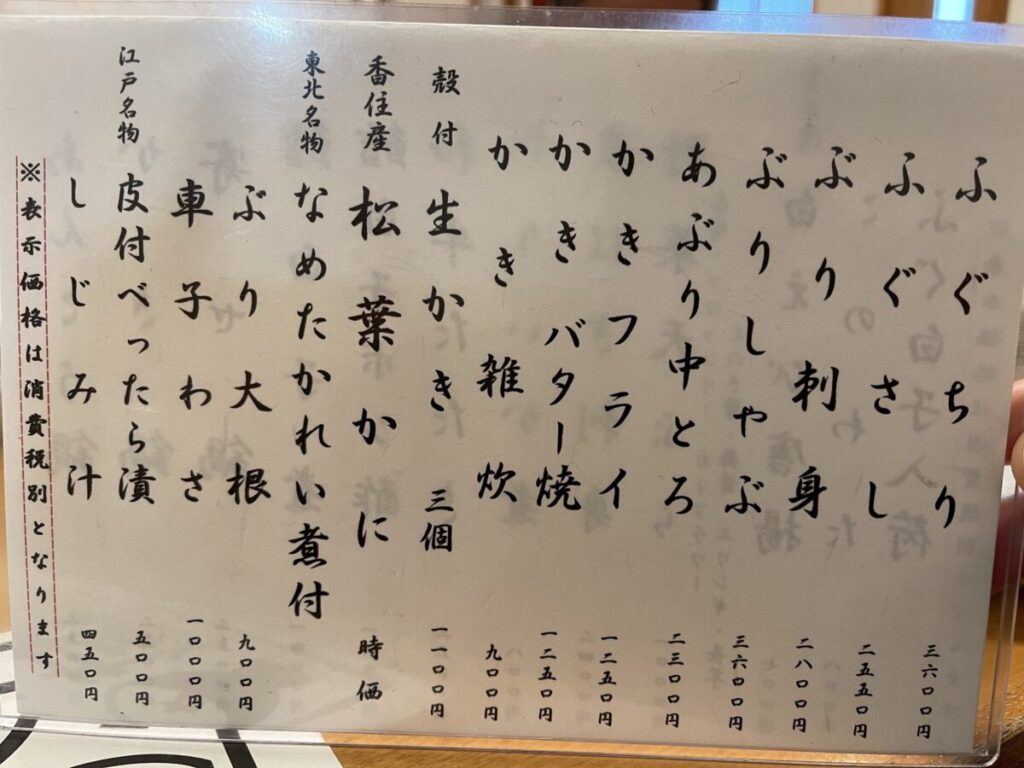 ふぐちり 三六〇〇円
ふぐさし 二五五〇円
ぶり刺身 二八〇〇円
ぶりしゃぶ 三六〇〇円
あぶり中とろ 二三〇〇円
かきフライ 一二五〇円
かきバター焼 一二五〇円
かき雑炊 九〇〇円
殻付 生かき 三個 一一〇〇円
香住産 松葉かに 時価
東北名物 なめたかれい煮付
ぶり大根 九〇〇円
車子わさ 一〇〇〇円
江戸名物 皮付べったら漬 五〇〇円
しじみ汁 四五〇円
※表示価格は消費税別となります